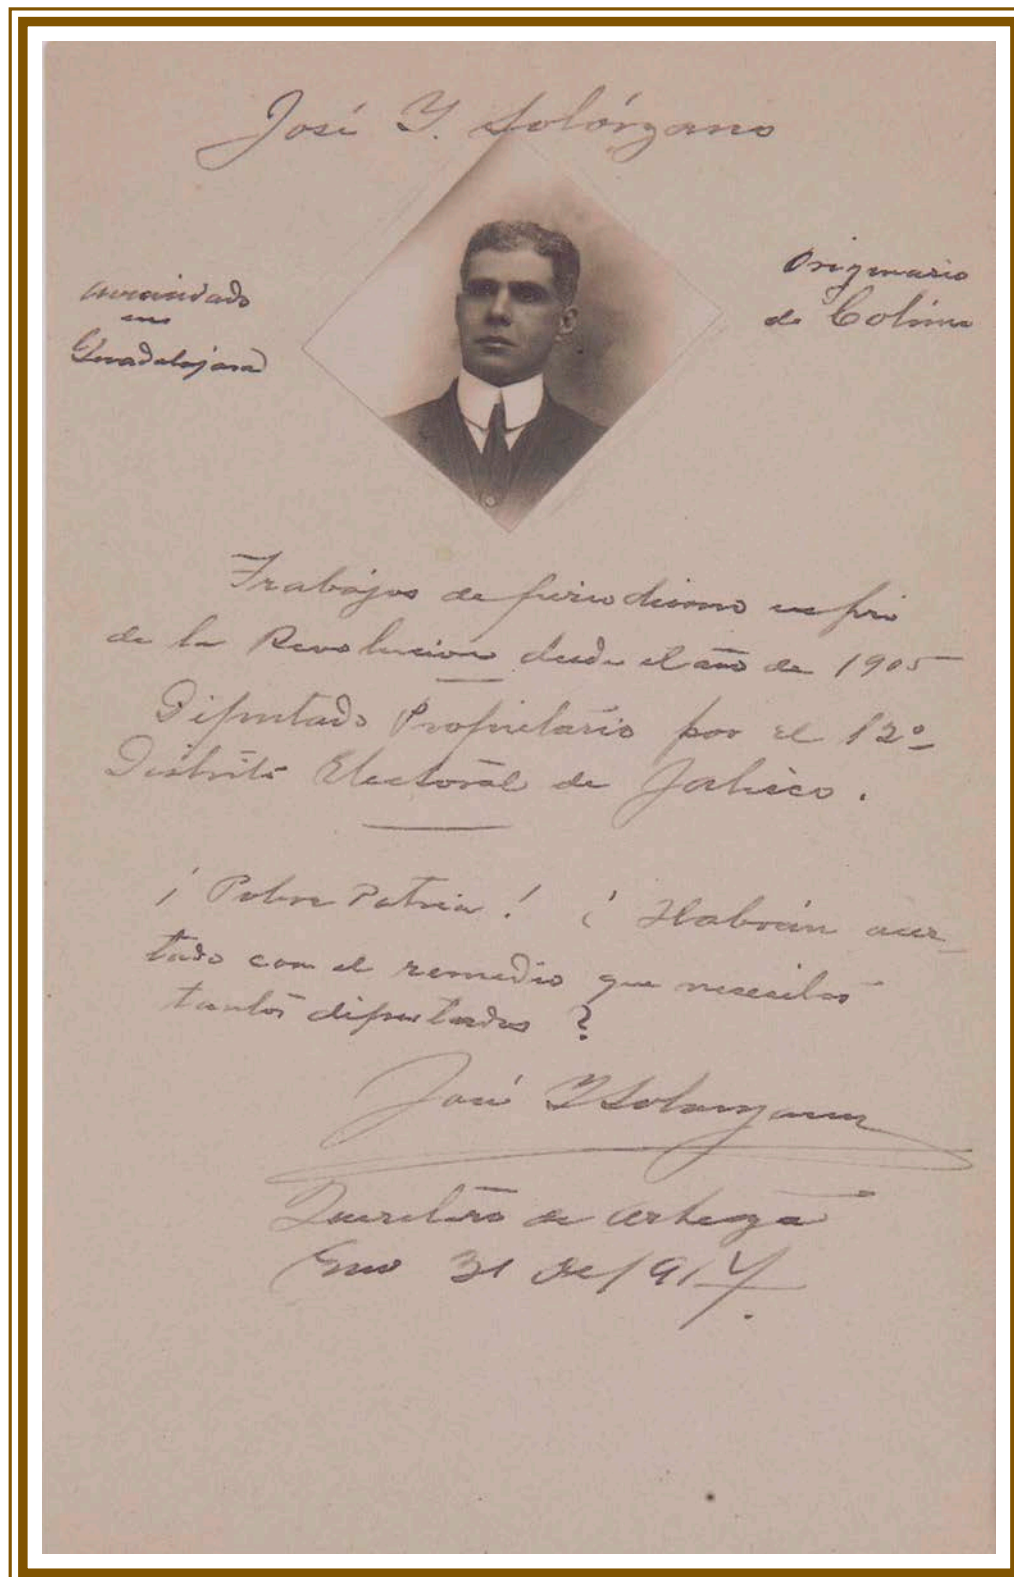 José Y. Solórzano
avecindado
en
Guadalajara
Originario
de Colima
Trabajos de periodismo en pró
de la Revolucion desde el año de 1905
Diputado Propietario por el 12º
Distrito Electoral de Jalisco.
¡Pobre Patria! ¿Habrán acer
tado con el remedio que necesitas
tantos diputados?
José Y Solorzano
Querétaro de Arteaga
Eno 31 de 1917.